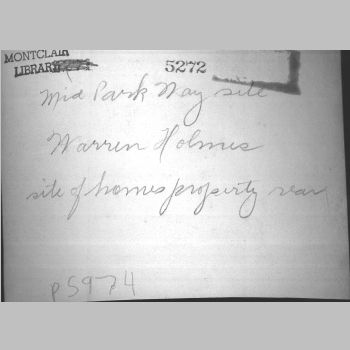 MONTCLAIR
LIBRARI
5272
Mid Park Way site
Warren Holmes
site of homes property rear
p5974